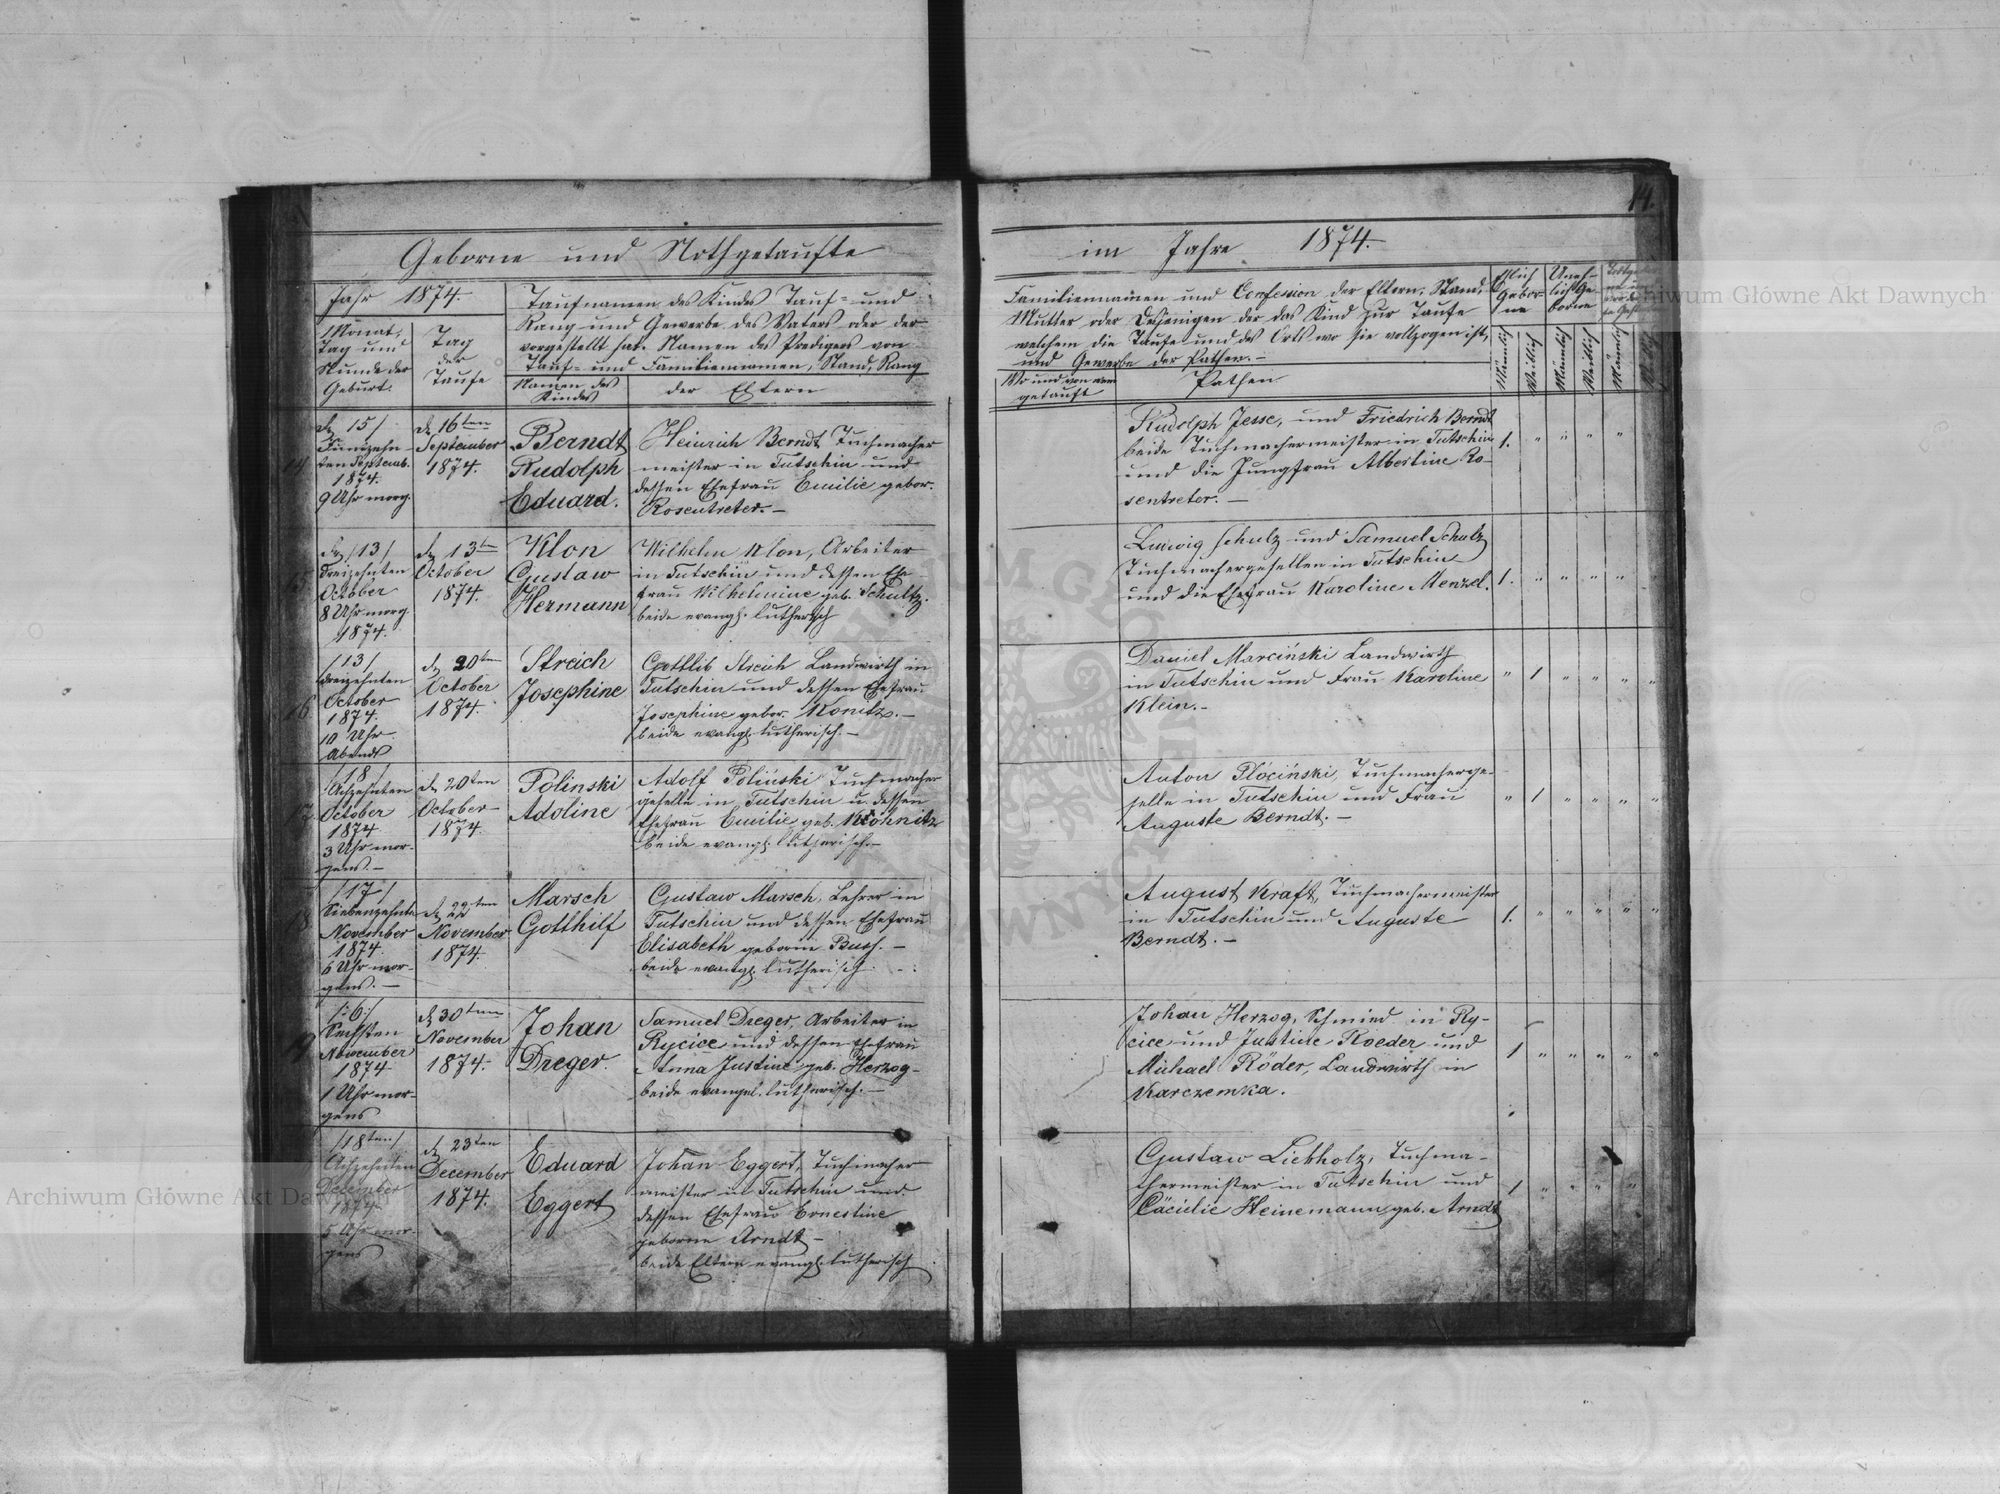 14.
Geborne und Nothgetaufte
im Jahre 1874.
Jahr 1874.
Monat,
Tag und
Stunde der
Geburt.
Tag
der
Taufe
Taufnamen des Kindes Tauf- und
Rang und Gewerbe des Vaters oder der
vorgestellt hat. Namen des Predigers von
Tauf- und Familiennamen, Stand, Rang
Namen des
Kindes
der Eltern
Familiennamen und Confession der Eltern, Stand,
Mutter oder Desjenigen der das Kind zur Taufe
welchem die Taufe und des Orts wo sie vollzogen ist,
und Gewerbe der Pathen.
Wo und von wem
getauft
Pathen
Ehlich
Gebor-
ne
Uneh-
lich Ge-
borne
Männlich
Weiblich
Männlich
Weiblich
Männlich
14.
d. 15/
Fünfzehn-
ten Septemb.
1874.
9 Uhr morg.
d. 16ten
September
1874.
Berndt
Rudolph
Eduard.
Heinrich Berndt Tuchmacher
meister in Tutschin und
dessen Ehefrau Emilie gebor.
Rosentreter.
Rudolph Jesse, und Friedrich Berndt
beide Tuchmachermeister in Tutschin
und die Jungfrau Albertine Ro-
sentreter.
1. " " " "
15
d. /13/
Dreizehnten
October
8 Uhr morg.
1874.
d. 13t
October
1874.
Klon
Gustaw
Hermann
Wilhelm Klon, Arbeiter
in Tutschin und dessen Ehe-
frau Wilhelmine geb. Schultz.
beide evangl. lutherisch
Ludwig Schulz und Samuel Schulz
Tuchmachergesellen in Tutschin
und die Ehefrau Karoline Menzel.
1. " " " "
16
/13/
Dreizehnten
October
1874.
10 Uhr
Abends
d. 20ten
October
1874.
Streich
Josephine
Gottlib Streich Landwirth in
Tutschin und dessen Ehefrau
Josephine gebor. Konitz.
beide evangl. lutherisch.
Daniel Marciński Landwirth
in Tutschin und Frau Karoline
Klein.
" 1 " " " "
17
/18/
Achzehnten
October
1874
3 Uhr mor-
gens.
d. 20ten
October
1874.
Polinski
Adoline
Adolf Poliński Tuchmacher
geselle in Tutschin u. dessen
Ehefrau Emilie geb. Köhnitz
beide evangl. lutherisch.
Anton Płóciński, Tuchmacherge-
selle in Tutschin und Frau
Auguste Berndt.
" 1 " " " "
18
/17/
Siebenzehnte
November
1874
6 Uhr mor-
gens.
d. 22ten
November
1874.
Marsch
Gotthilf
Gustaw Marsch, Lehrer in
Tutschin und dessen Ehefrau
Elisabeth geborne Buss.
beide evangl. lutherisch.
August Kraft, Tuchmachermeister
in Tutschin und Auguste
Berndt.
1. " " " " "
19
/:6:/
Sechsten
November
1874
1 Uhr mor-
gens
d. 30ten
November
1874.
Johan
Dreger.
Samuel Dreger, Arbeiter in
Rycice und dessen Ehefrau
Anna Justine geb. Herzog
beide evangel. lutherisch.
Johan Herzog, Schmied in Ry-
cice und Justine Roeder und
Michael Röder, Landwirth in
Karczemka.
1 " " " " "
/18ten/
Achzehnten
December
1874
5 Uhr mor-
gens
d. 23ten
December
1874.
Eduard
Eggert
Johan Eggert, Tuchmacher
meister in Tutschin und
dessen Ehefrau Ernestine
geborne Arndt
beide Eltern evangl. lutherisch
Gustaw Liebholz, Tuchma-
chermeister in Tutschin und
Cäcilie Heinemann geb. Arndt
1 " " " "
Archiwum Główne Akt Dawnych
Archiwum Główne Akt Dawnych